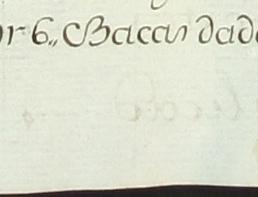 or 6,, Bacas dad